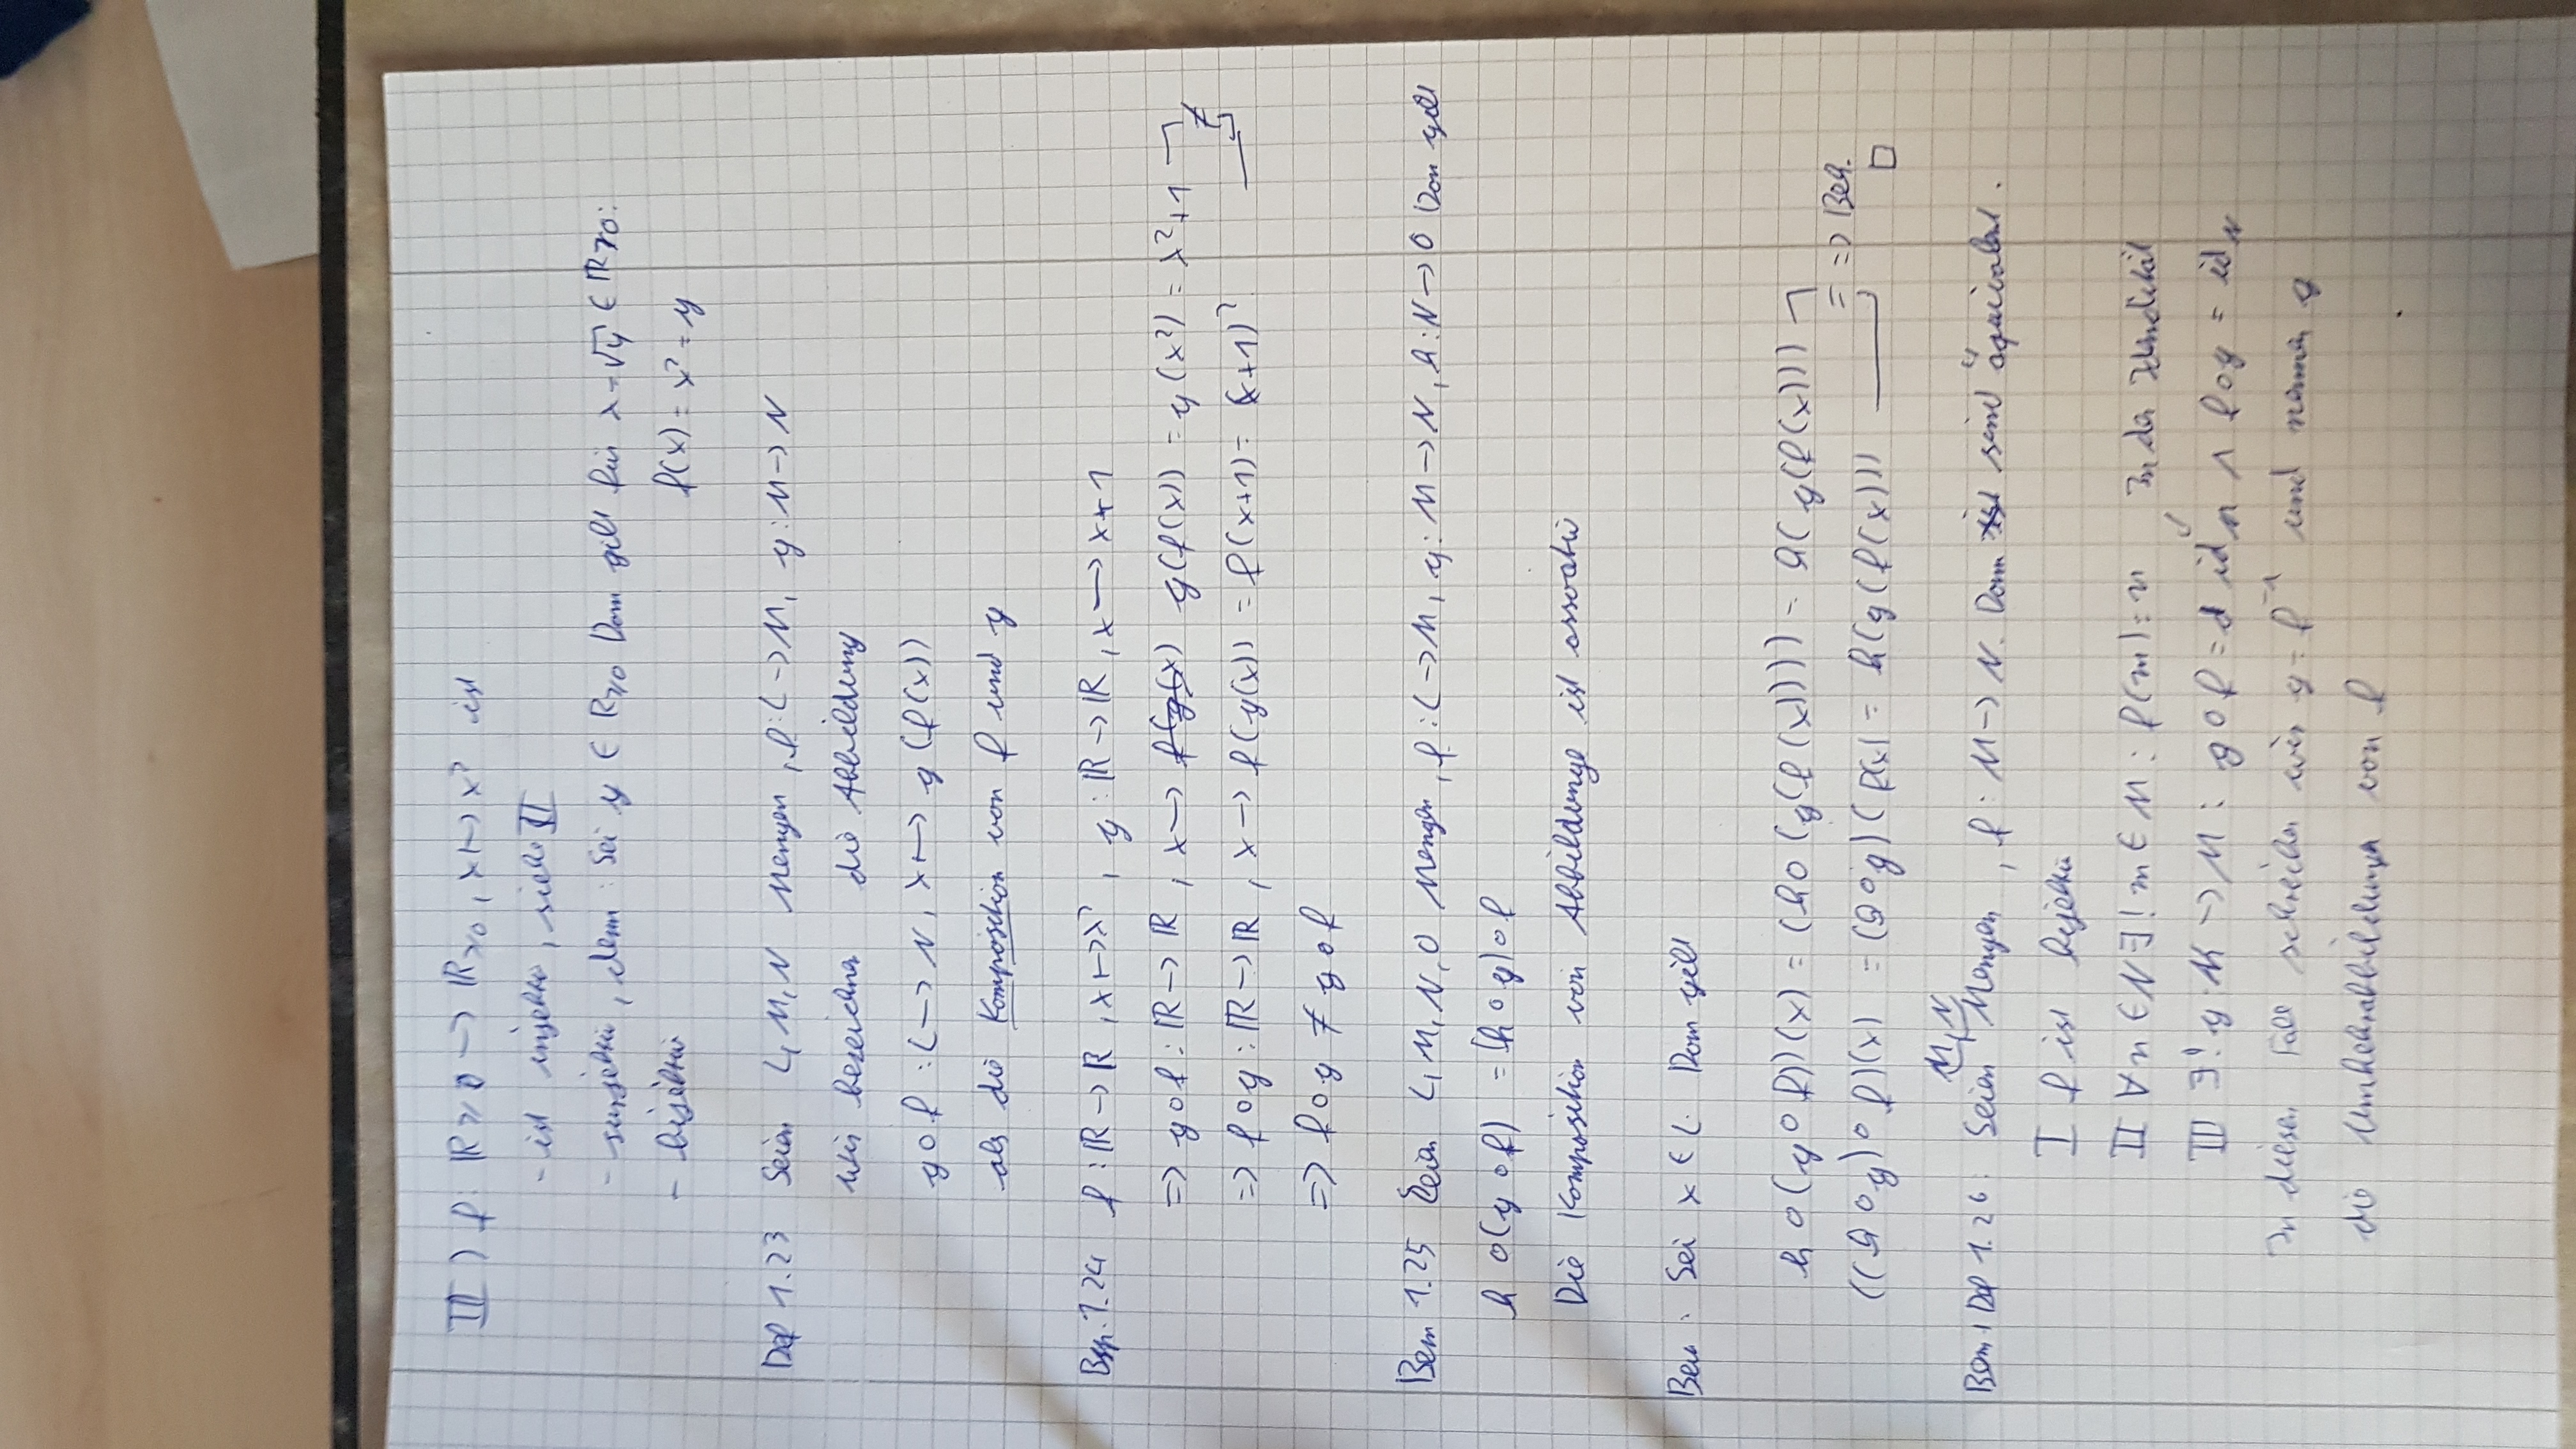 III) f: ℝ≥0 → ℝ≥0, x ↦ x² ist
- ist injektiv, siehe II
- surjektiv, denn: Sei y ∈ ℝ≥0 Dann gilt für x = √y ∈ ℝ≥0:
- bijektiv f(x) = x² = y
Def 1.23 Seien L, M, N Mengen, f: L → M, g: M → N
Wir bezeichnen die Abbildung
g∘f : L → N, x ↦ g(f(x))
als die Komposition von f und g
Bsp. 1.24 f: ℝ → ℝ, x ↦ x², g: ℝ → ℝ, x → x+1
=> g∘f: ℝ → ℝ, x → f(g(x) g(f(x)) = g(x²) = x²+1
≠
=> f∘g: ℝ → ℝ, x → f(g(x)) = f(x+1) = (x+1)²
=> f∘g ≠ g∘f
Bem 1.25 Seien L, M, N, O Mengen, f: L → M, g: M → N, h: N → O Dann gilt
h∘(g∘f) = (h∘g)∘f
Die Komposition von Abbildunge ist assoativ
Bew: Sei x ∈ L. Dann gilt
h∘(g∘f))(x) = (h∘(g(f(x)))) = h(g(f(x)))
= => Beh.
((h∘g)∘f)(x) = (h∘g)(f(x) = h(g(f(x))) □
M, N
Bem + Def 1.26: Seien Mengen, f: M → N. Dann ist sind äquivalent.
I f ist bijektiv
II ∀n ∈ N ∃! m ∈ M: f(m) = n In der
III ∃! g: N → M: g∘f = id_M ∧ f∘g = id_N
In diesen Fall schreiben wir g = f⁻¹ und nennen g
die Umkehrabbildung von f